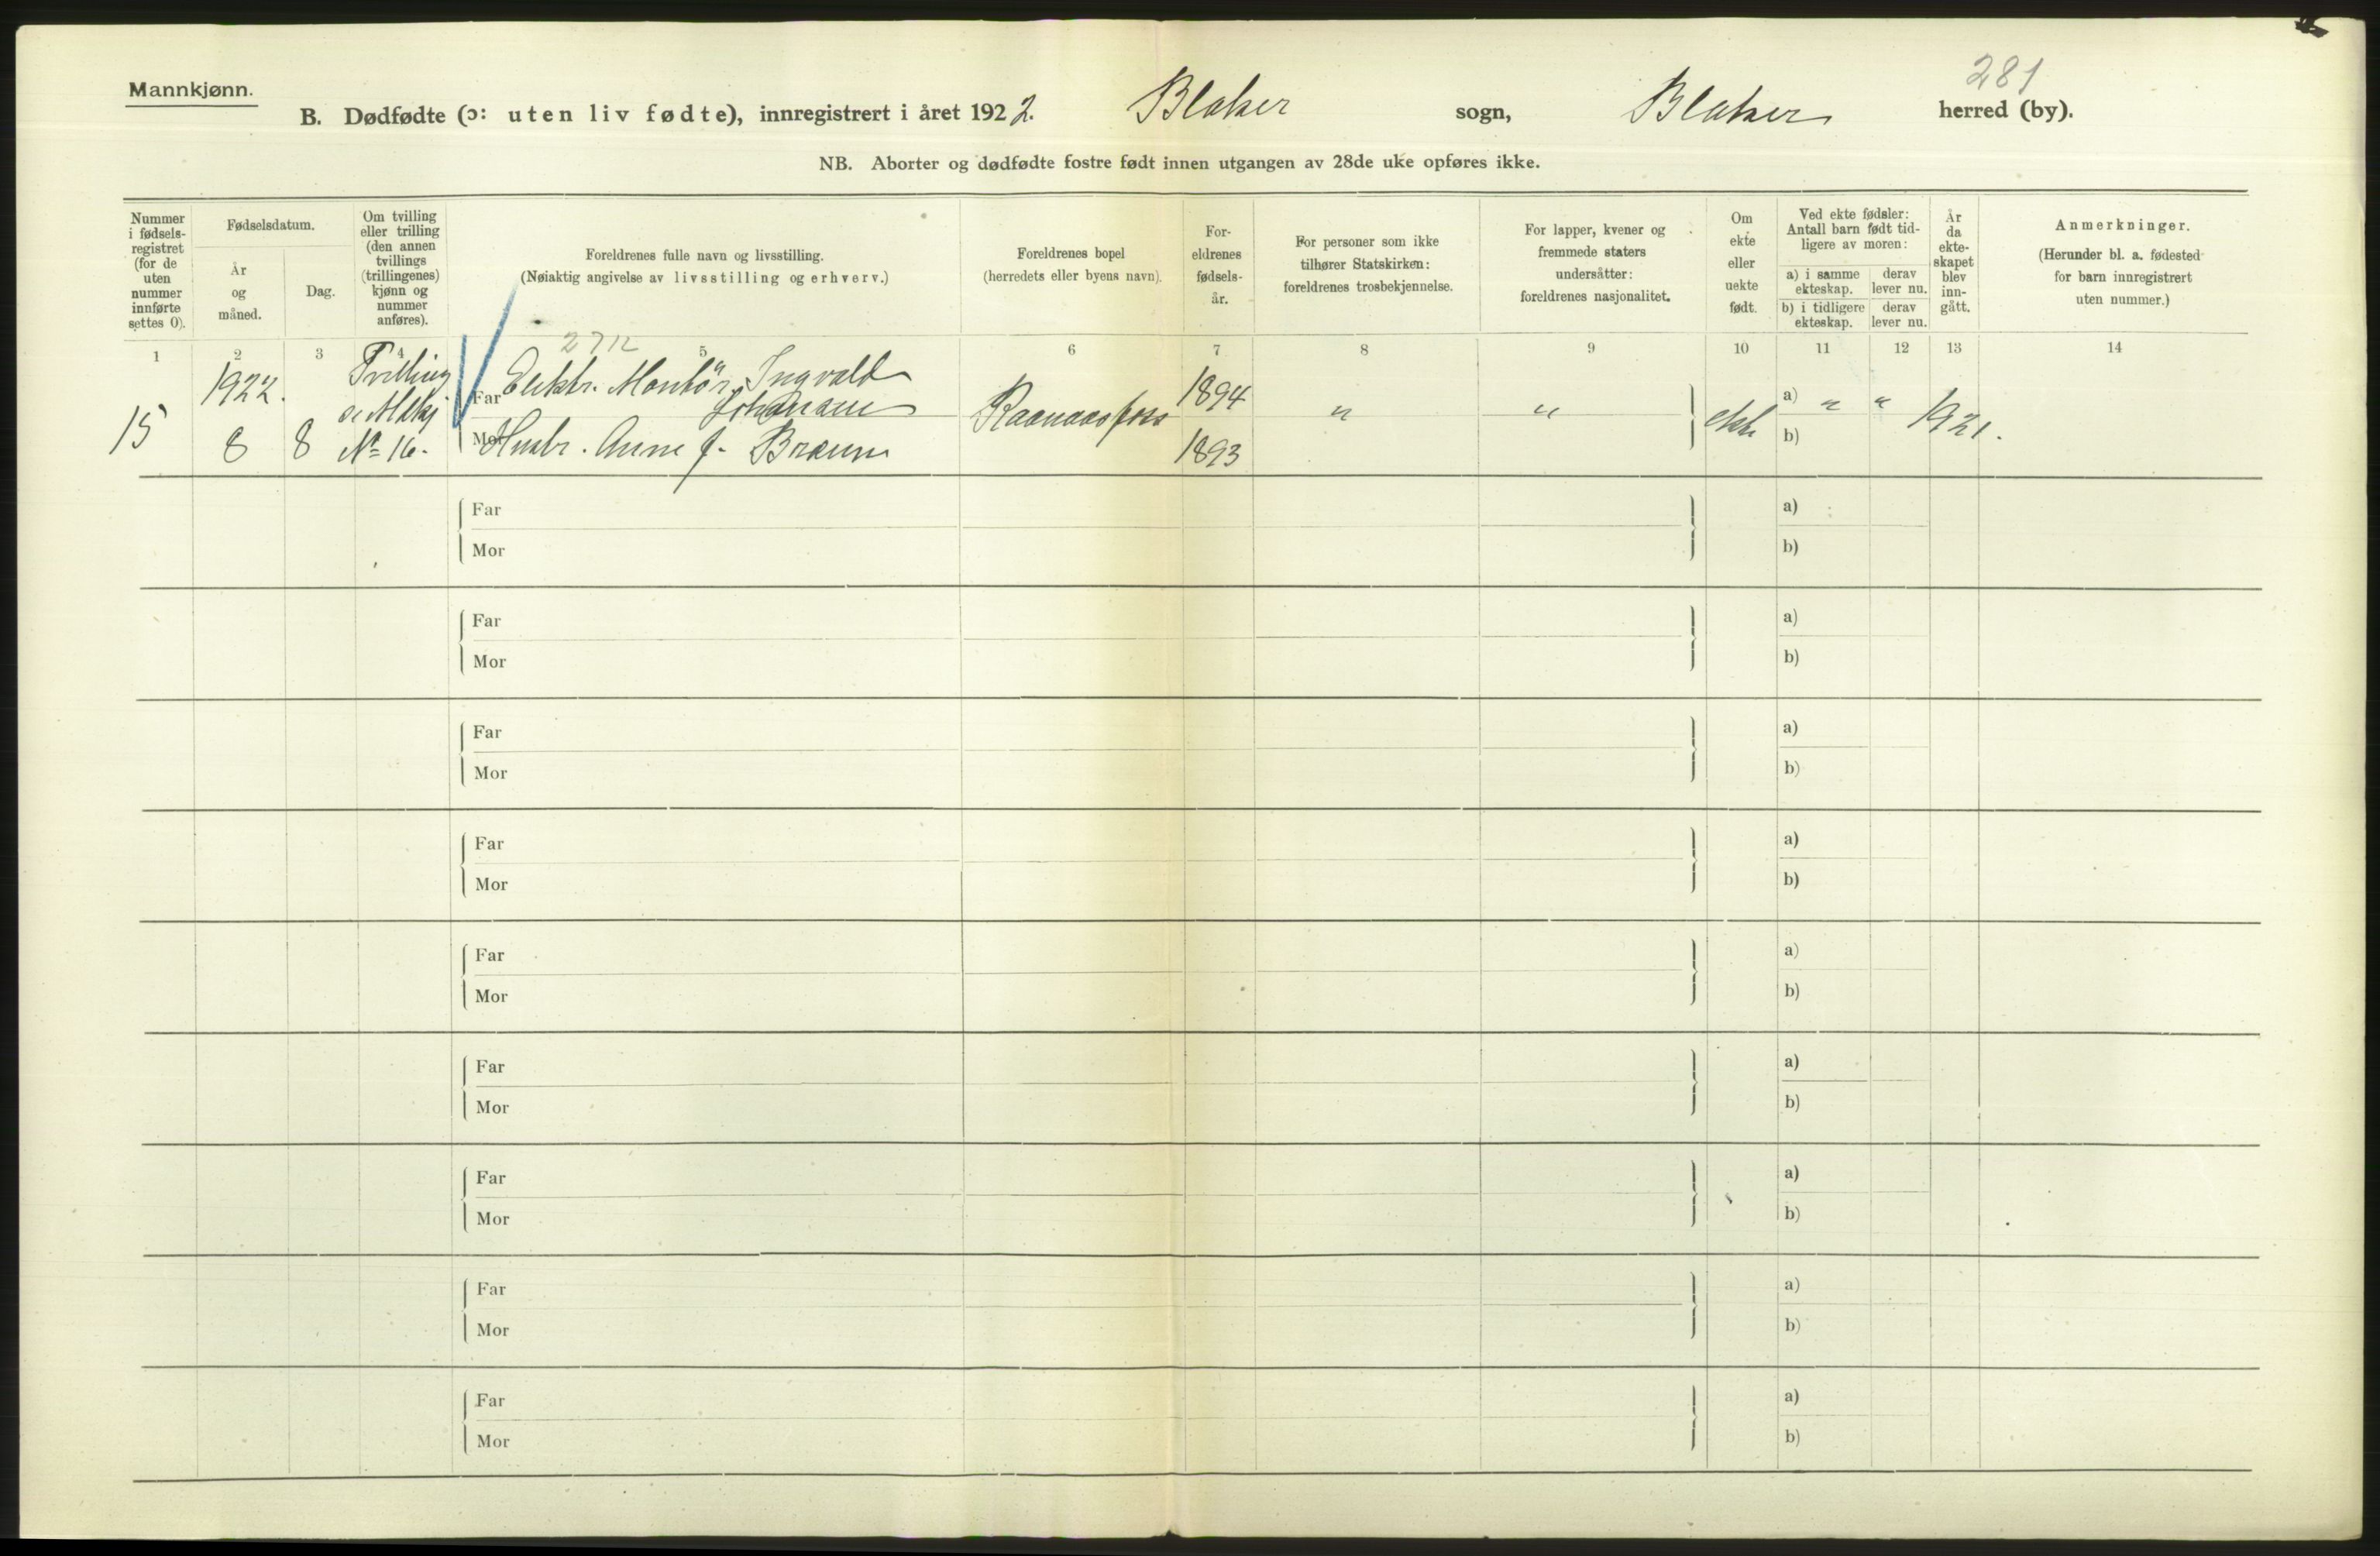 281
Mannkjønn.
B. Dødfødte (ɔ: uten liv fødte), innregistrert i året 1922. Blaker sogn, Blaker herred (by).
NB. Aborter og dødfødte fostre født innen utgangen av 28de uke opføres ikke.
Nummer i fødsels- registret (for de uten nummer innførte settes 0).
Fødselsdatum.
År og måned.
Dag.
Om tvilling eller trilling (den annen tvillings (trillingenes) kjønn og nummer anføres).
Foreldrenes fulle navn og livsstilling.
(Nøiaktig angivelse av livsstilling og erhverv.)
Foreldrenes bopel
(herredets eller byens navn).
For- eldrenes fødsels- år.
For personer som ikke tilhører Statskirken: foreldrenes trosbekjennelse.
For lapper, kvener og fremmede staters undersåtter: foreldrenes nasjonalitet.
Om ekte eller uekte født.
Ved ekte fødsler: Antall barn født tid- ligere av moren:
a) i samme ekteskap.
derav lever nu.
b) i tidligere ekteskap.
derav lever nu.
År da ekte- skapet blev inn- gått.
Anmerkninger.
(Herunder bl. a. fødested for barn innregistrert uten nummer.)
1 2 3 4 5 6 7 8 9 10 11 12 13 14
2712
15 1922. 8 8 Tvilling
No 16.
Far Elektr. Montör Ingvald Johansen
Mor Hustr. Anne J. Braun
Raanaasfoss
1894
1893
" " ekte a) " " 1921.
b)
Far a)
Mor b)
Far a)
Mor b)
Far a)
Mor b)
Far a)
Mor b)
Far a)
Mor b)
Far a)
Mor b)
Far a)
Mor b)
Far a)
Mor b)
Far a)
Mor b)